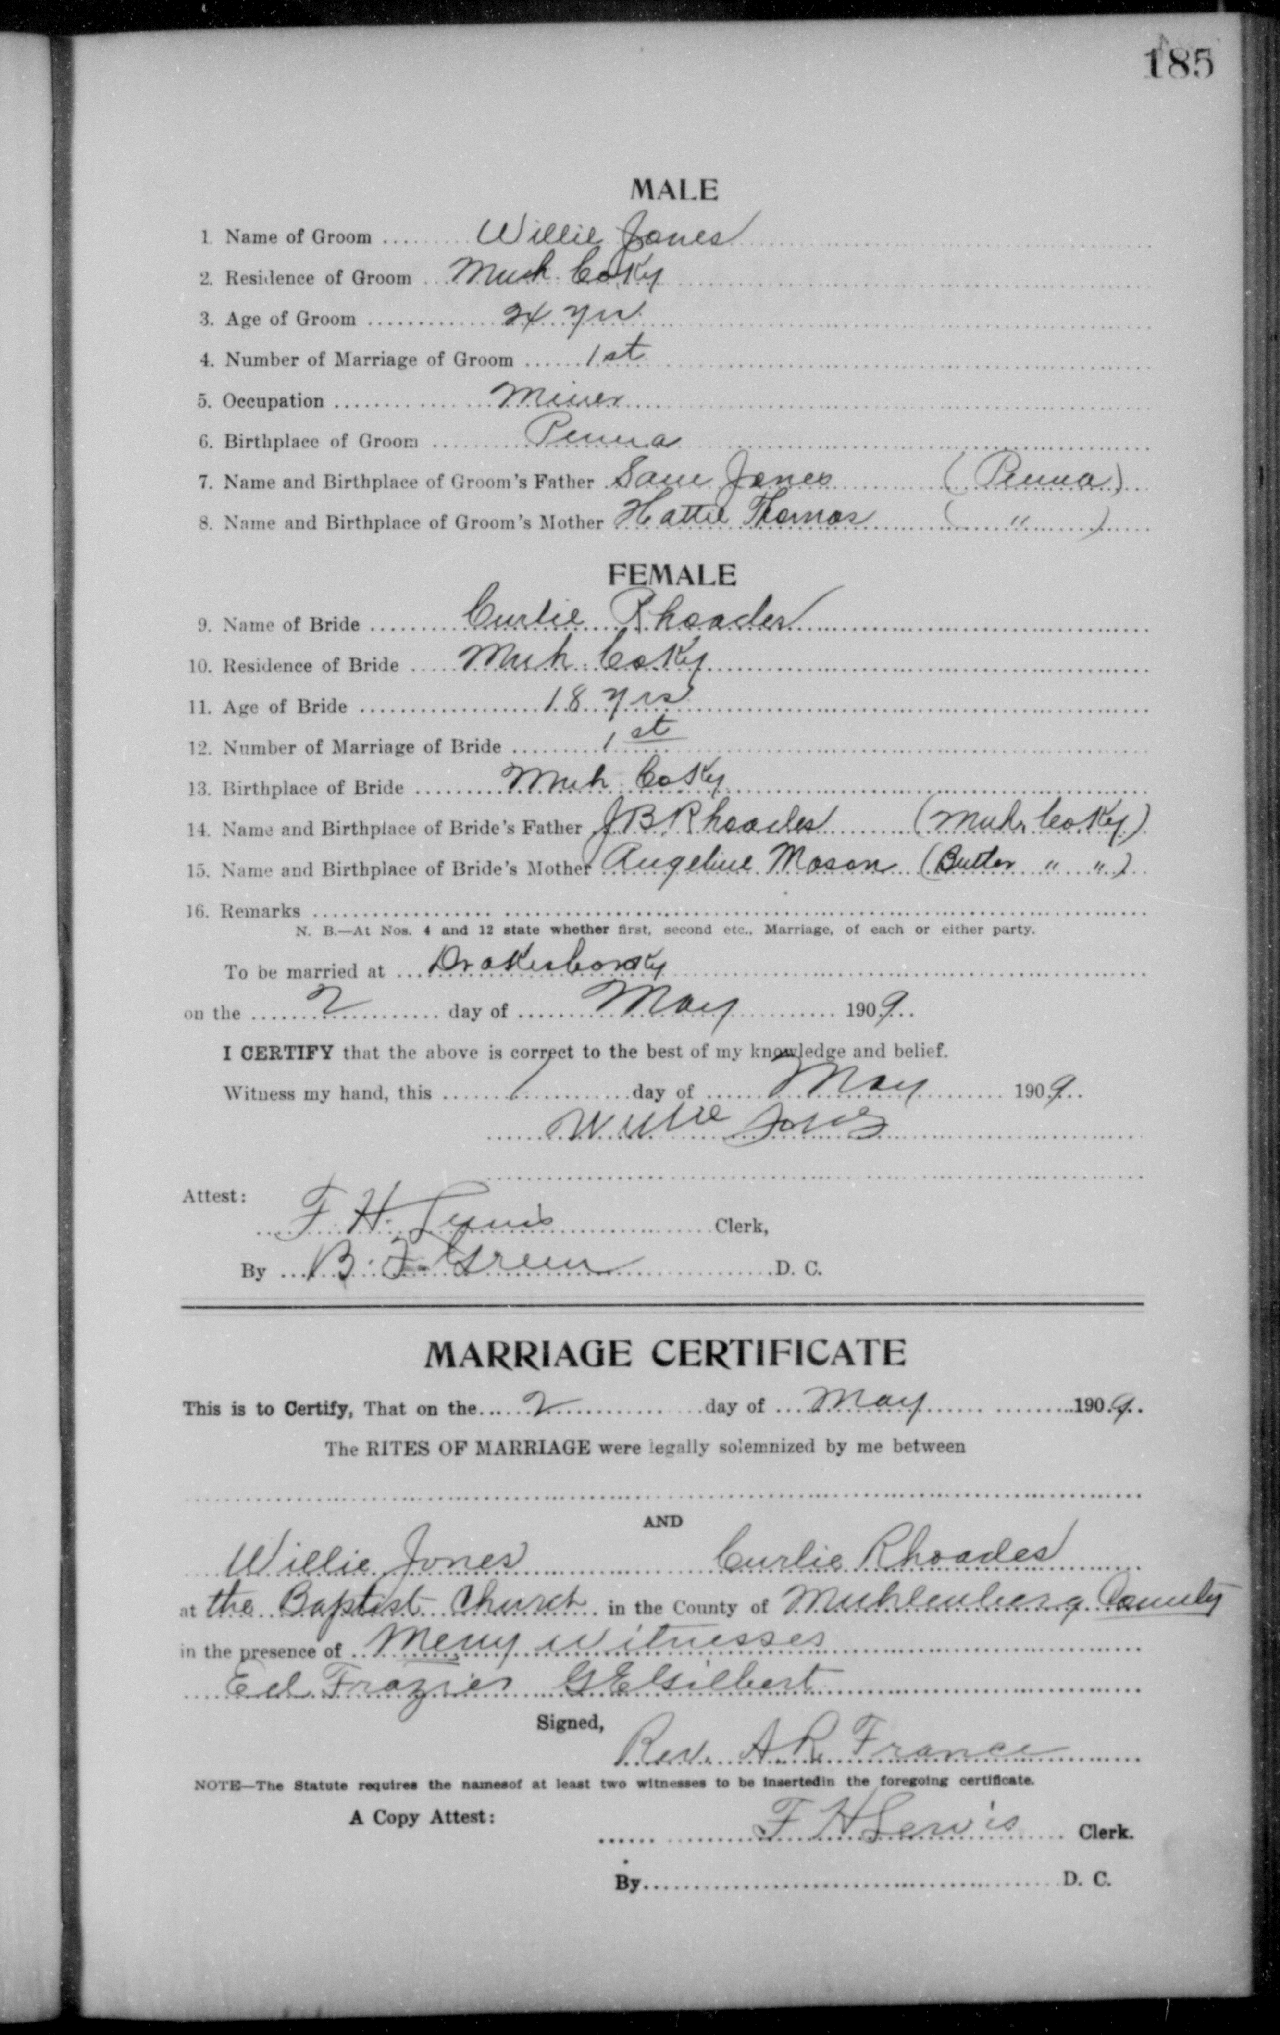 185
MALE
1 Name of Groom Willie Jones
2. Residence of Groom Muh Co Ky
3. Age of Groom 24 yrs
4. Number of Marriage of Groom 1st
5. Occupation Miner
6. Birthplace of Groom Penna
7. Name and Birthplace of Groom's Father Sam Jones (Penna)
8. Name and Birthplace of Groom's Mother Hattie Thomas ( " )
FEMALE
9. Name of Bride Curlie Rhoades
10. Residence of Bride Muh Co Ky
11. Age of Bride 18 yrs
12. Number of Marriage of Bride 1st
13. Birthplace of Bride Muh Co Ky
14. Name and Birthplace of Bride's Father J B Rhoades (Muh Co Ky)
15. Name and Birthplace of Bride's Mother Angeline Mason (Butler " ")
16. Remarks
N. B.—At Nos. 4 and 12 state whether first, second etc., Marriage, of each or either party.
To be married at Drakesboro Ky
on the 2 day of May 1909
I CERTIFY that the above is correct to the best of my knowledge and belief.
Witness my hand, this 1 day of May 1909
Willie Jones
Attest:
F. H. Lewis Clerk,
By B. F. Green D. C.
MARRIAGE CERTIFICATE
This is to Certify, That on the 2 day of May 1909.
The RITES OF MARRIAGE were legally solemnized by me between
AND
Willie Jones Curlie Rhoades
at the Baptist Church in the County of Muhlenberg County
in the presence of Meny witnesses
Ed Frazier G E Gilbert
Signed,
Rev. A. R. France
NOTE—The Statute requires the namesof at least two witnesses to be insertedin the foregoing certificate.
A Copy Attest:
F H Lewis Clerk.
By D. C.